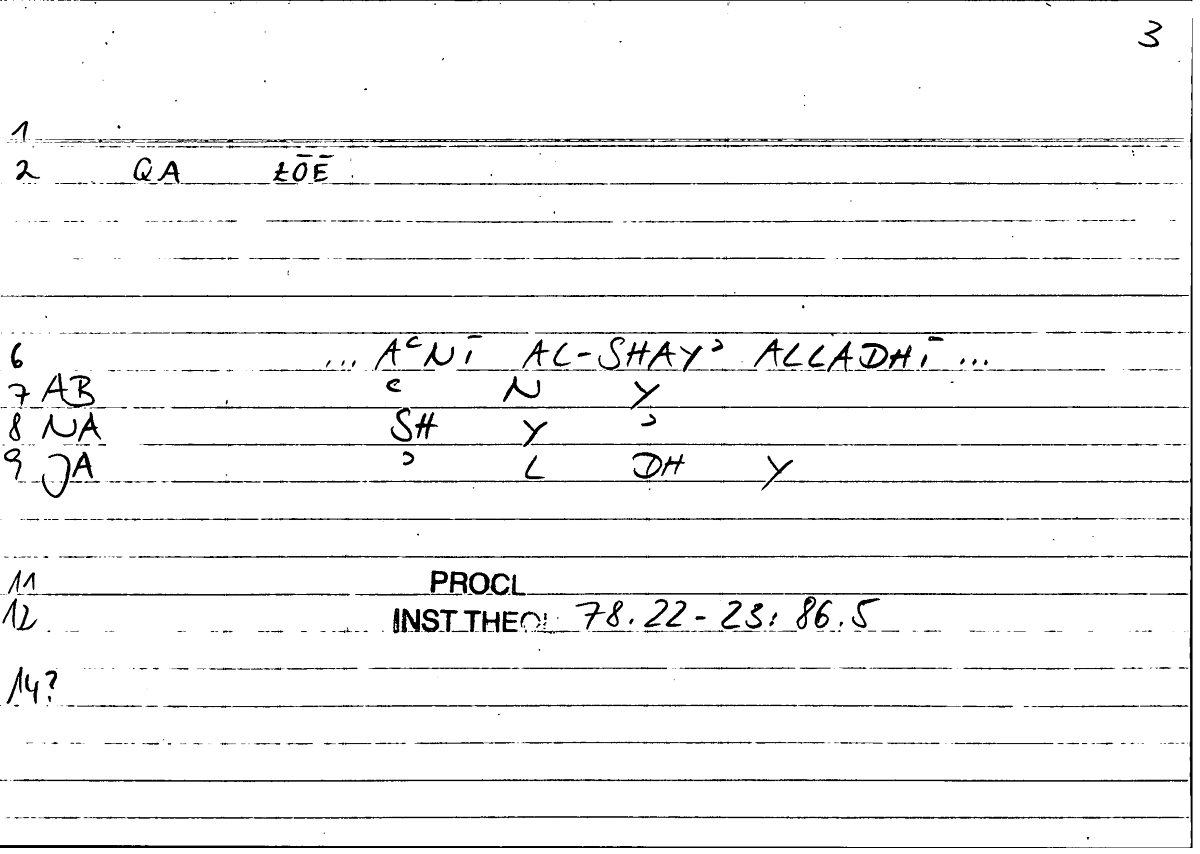 3
1
2 QA ƵŌĒ
6 ... AᶜNĪ AL-SHAYʾ ALLADHĪ ...
7 AB ᶜ N Y
8 NA SH Y ʾ
9 JA ʾ L DH Y
11 PROCL
12 INST THEOL 78.22-23: 86.5
14?